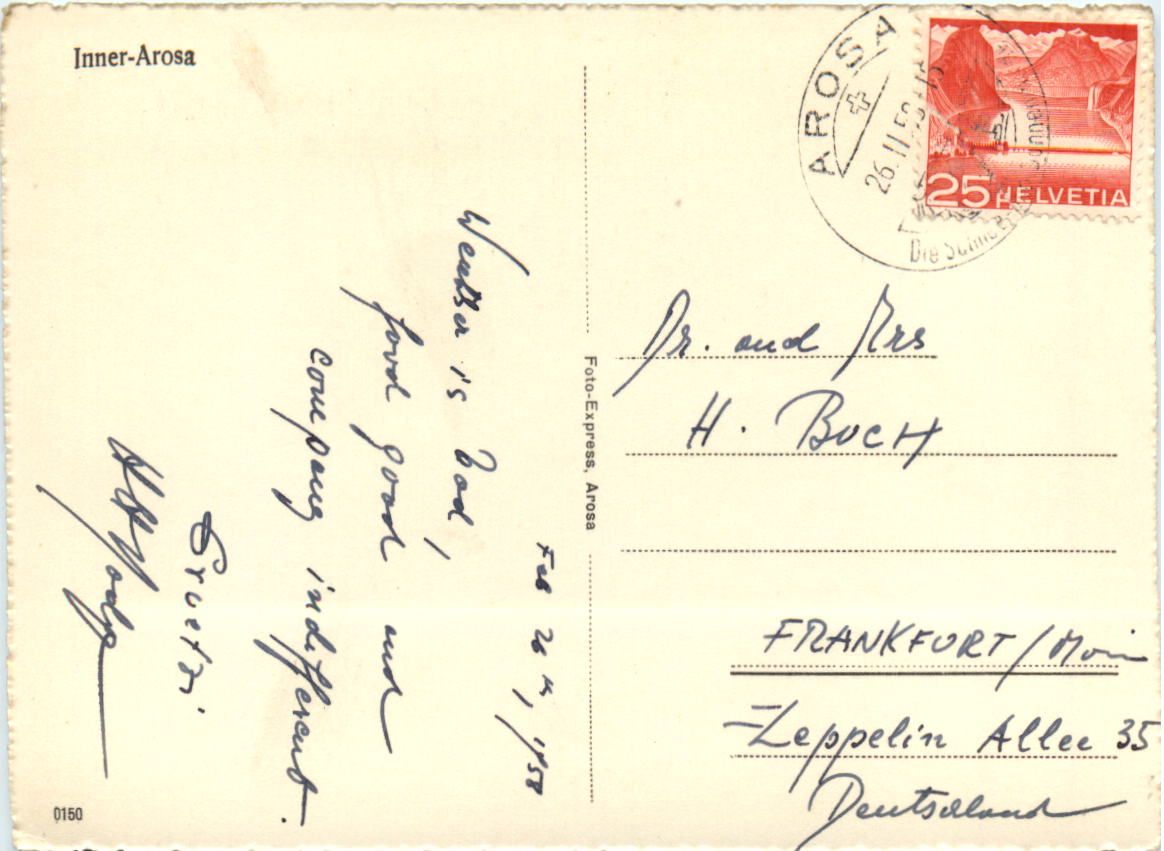 Inner-Arosa
AROSA
26.II.58
25 HELVETIA
Feb 26th, 1958
Weather is bad,
food good and
company indifferent.
Gruetzi
Foto-Express, Arosa
Dr. and Mrs
H. BUCH
FRANKFURT/Main
Zeppelin Allee 35
Deutschland
0150